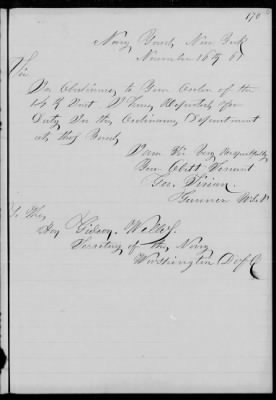 170
Navy Yard, New York
November 16th 61
Sir
In Obedience to Your Order of the
14th Inst I have Reported for
Duty In the Ordnance Department
at this Yard
I am Sir Very Respectfully
Your Obdt Servant
Geo. Sirian
Gunner U.S.N
To The
Hon Gideon Wells.
Secretary of the Navy
Washington D of C